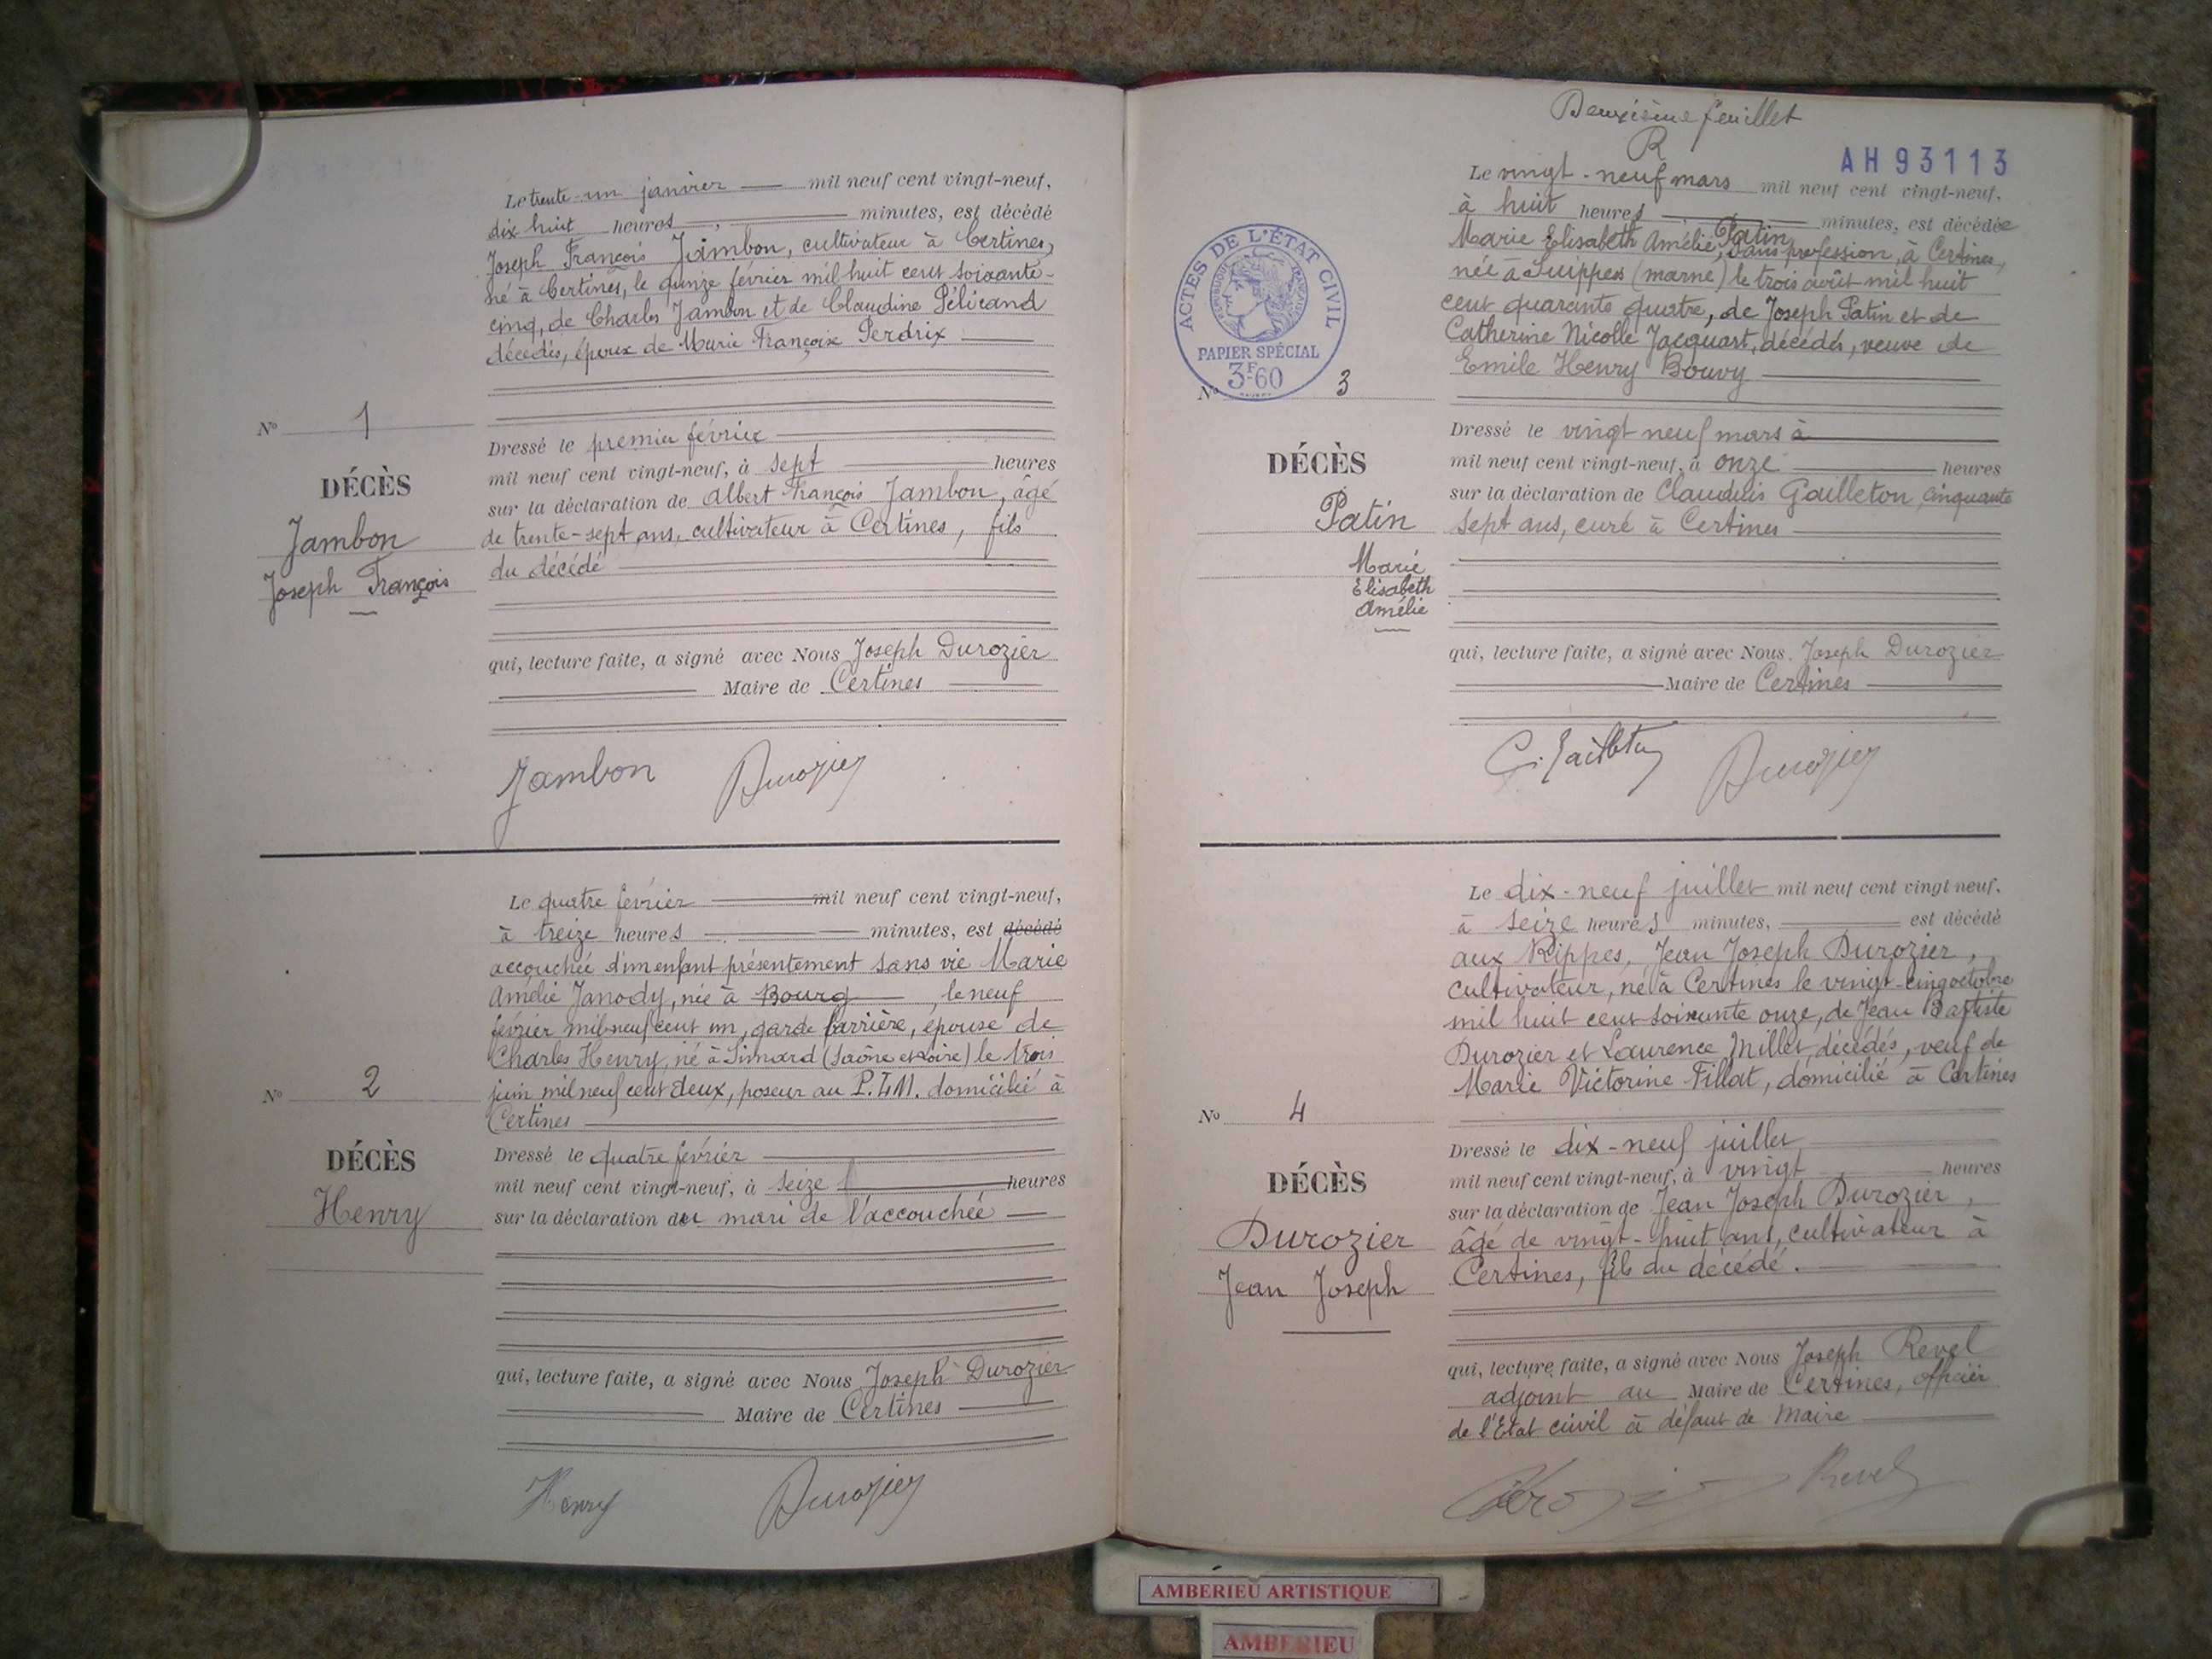 Le trente-un janvier mil neuf cent vingt-neuf,
dix huit heures, minutes, est décédé
Joseph François Jambon, cultivateur à Certines,
né à Certines, le quinze février mil huit cent soixante-
cinq, de Charles Jambon et de Claudine Pélicand
décédés, époux de Marie Françoise Perdrix
N° 1
DÉCÈS
Jambon
Joseph François
Dressé le premier février
mil neuf cent vingt-neuf, à sept heures
sur la déclaration de Albert François Jambon, âgé
de trente-sept ans, cultivateur à Certines, fils
du décédé
qui, lecture faite, a signé avec Nous Joseph Durozier
Maire de Certines
Jambon Durozier
Le quatre février mil neuf cent vingt-neuf,
à treize heures minutes, est décédé
accouchée d'un enfant présentement sans vie Marie
Amélie Janody, née à Bourg, le neuf
février mil neuf cent un, garde barrière, épouse de
Charles Henry, né à Simard (Saône et Loire) le trois
juin mil neuf cent deux, poseur au P.L.M. domicilié à
Certines
N° 2
DÉCÈS
Henry
Dressé le quatre février
mil neuf cent vingt-neuf, à seize heures
sur la déclaration du mari de l'accouchée
qui, lecture faite, a signé avec Nous Joseph Durozier
Maire de Certines
Henry Durozier
Deuxième feuillet
R
AH 93113
ACTES DE L'ÉTAT CIVIL
RÉPUBLIQUE FRANÇAISE
PAPIER SPÉCIAL
3F60
Le vingt-neuf mars mil neuf cent vingt-neuf,
à huit heures minutes, est décédée
Marie Elisabeth Amélie, Patin, sans profession, à Certines,
née à Suippes (marne) le trois août mil huit
cent quarante quatre, de Joseph Patin et de
Catherine Nicolle Jacquart, décédés, veuve de
Emile Henry Bouvy
N° 3
DÉCÈS
Patin
Marie
Elisabeth
Amélie
Dressé le vingt neuf mars à
mil neuf cent vingt-neuf, à onze heures
sur la déclaration de Claudius Gailleton, cinquante
sept ans, curé à Certines
qui, lecture faite, a signé avec Nous Joseph Durozier
Maire de Certines
C. Gailleton Durozier
Le dix-neuf juillet mil neuf cent vingt neuf,
à seize heures minutes, est décédé
aux Rippes, Jean Joseph Durozier,
cultivateur, né à Certines le vingt-cinq octobre
mil huit cent soixante onze, de Jean Baptiste
Durozier et Laurence Millet, décédés, veuf de
Marie Victorine Fillat, domicilié à Certines
N° 4
DÉCÈS
Durozier
Jean Joseph
Dressé le dix-neuf juillet
mil neuf cent vingt-neuf, à vingt heures
sur la déclaration de Jean Joseph Durozier,
âgé de vingt-huit ans, cultivateur à
Certines, fils du décédé.
qui, lecture faite, a signé avec Nous Joseph Revel
adjoint au Maire de Certines, officier
de l'Etat civil à défaut de Maire
Revel
AMBERIEU ARTISTIQUE
AMBERIEU